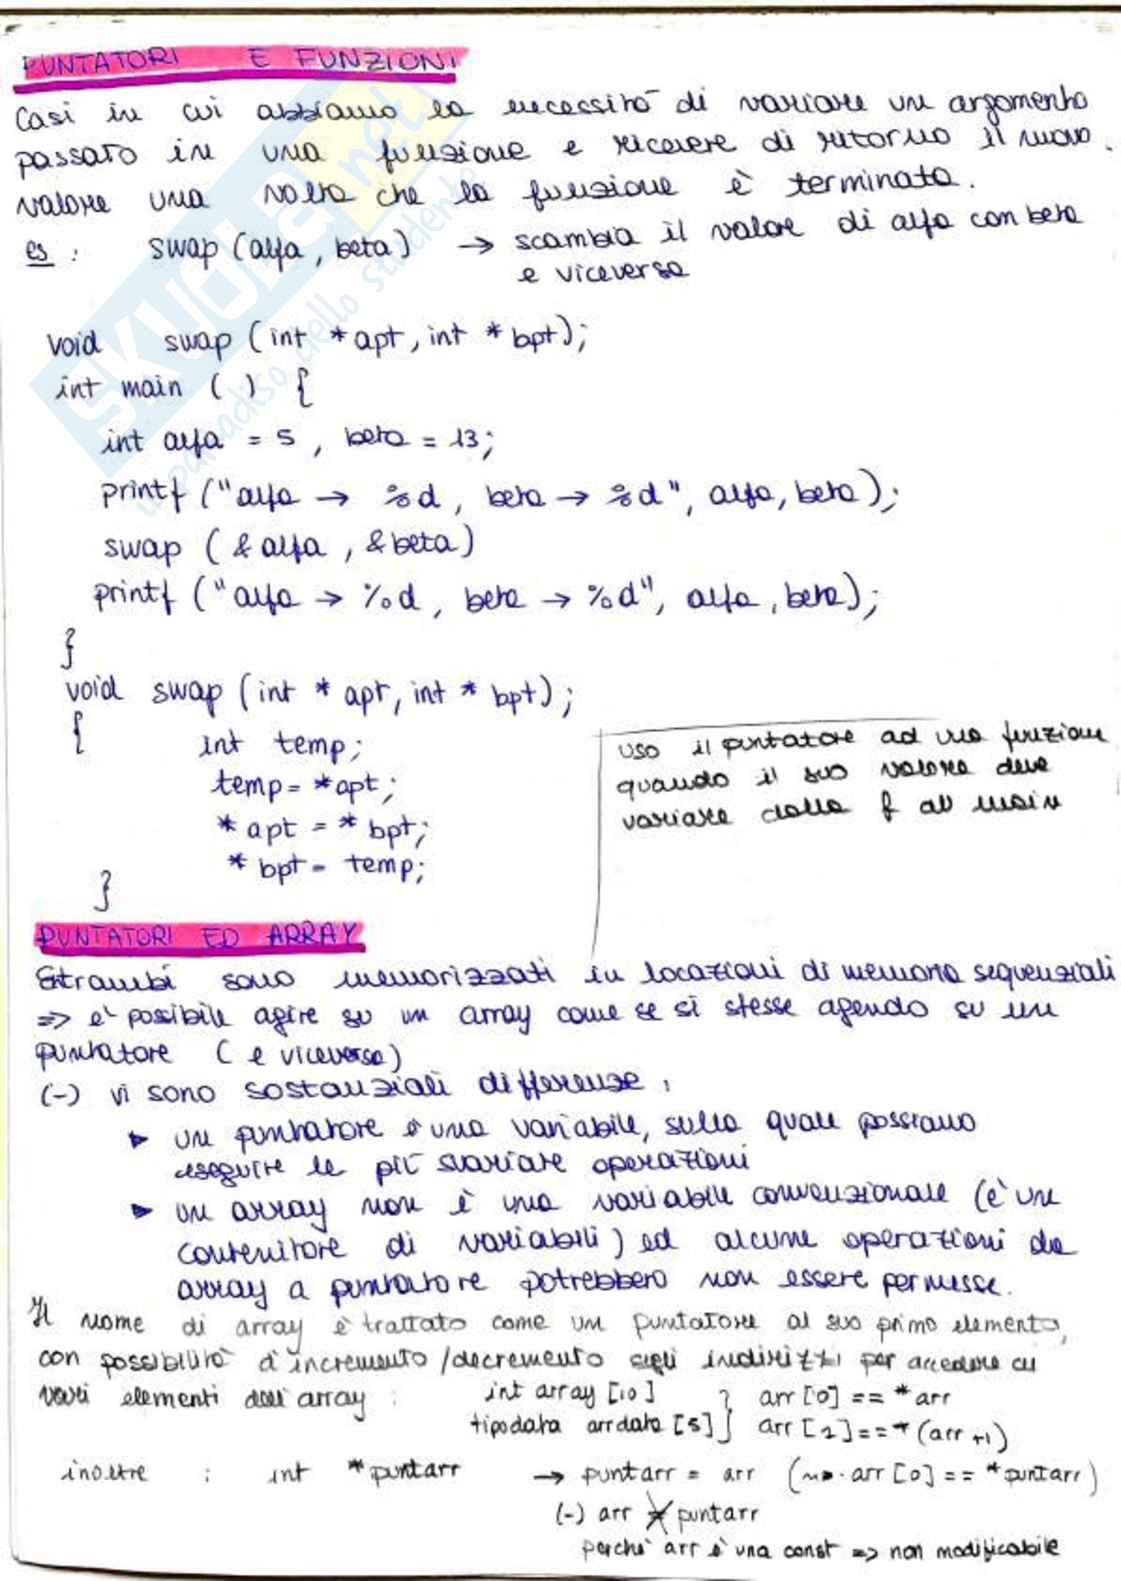 PUNTATORI E FUNZIONI
Casi in cui abbiamo la necessità di variare un argomento
passato in una funzione e ricevere di ritorno il nuovo
valore una volta che la funzione è terminata.
es: swap (alfa, beta) → scambia il valore di alfa con beta
e viceversa
void swap (int *apt, int *bpt);
int main ( ) {
int alfa = 5, beta = 13;
printf ("alfa → %d, beta → %d", alfa, beta);
swap (&alfa, &beta)
printf ("alfa → %d, beta → %d", alfa, beta);
}
void swap (int * apt, int * bpt);
{ int temp;
temp = *apt;
* apt = * bpt;
* bpt = temp;
}
uso il puntatore ad una funzione
quando il suo valore deve
variare dalla f al main
PUNTATORI ED ARRAY
Entrambi sono memorizzati in locazioni di memoria sequenziali
=> e' possibile agire su un array come se si stesse agendo su un
puntatore (e viceversa)
(-) vi sono sostanziali differenze:
▸ un puntatore è una variabile, sulla quale possiamo
eseguire le più svariate operazioni
▸ un array non è una variabile convenzionale (è un
contenitore di variabili) ed alcune operazioni da
array a puntatore potrebbero non essere permesse.
Il nome di array è trattato come un puntatore al suo primo elemento,
con possibilità d'incremento/decremento degli indirizzi per accedere ai
vari elementi dell'array: int array [10] } arr [0] == *arr
tipodata arrdata [5] } arr [2] == *(arr +1)
inoltre : int *puntarr → puntarr = arr (arr [0] == *puntarr)
(-) arr ≠ puntarr
perché arr è una const => non modificabile
SKUOLA.net
il paradiso dello studente